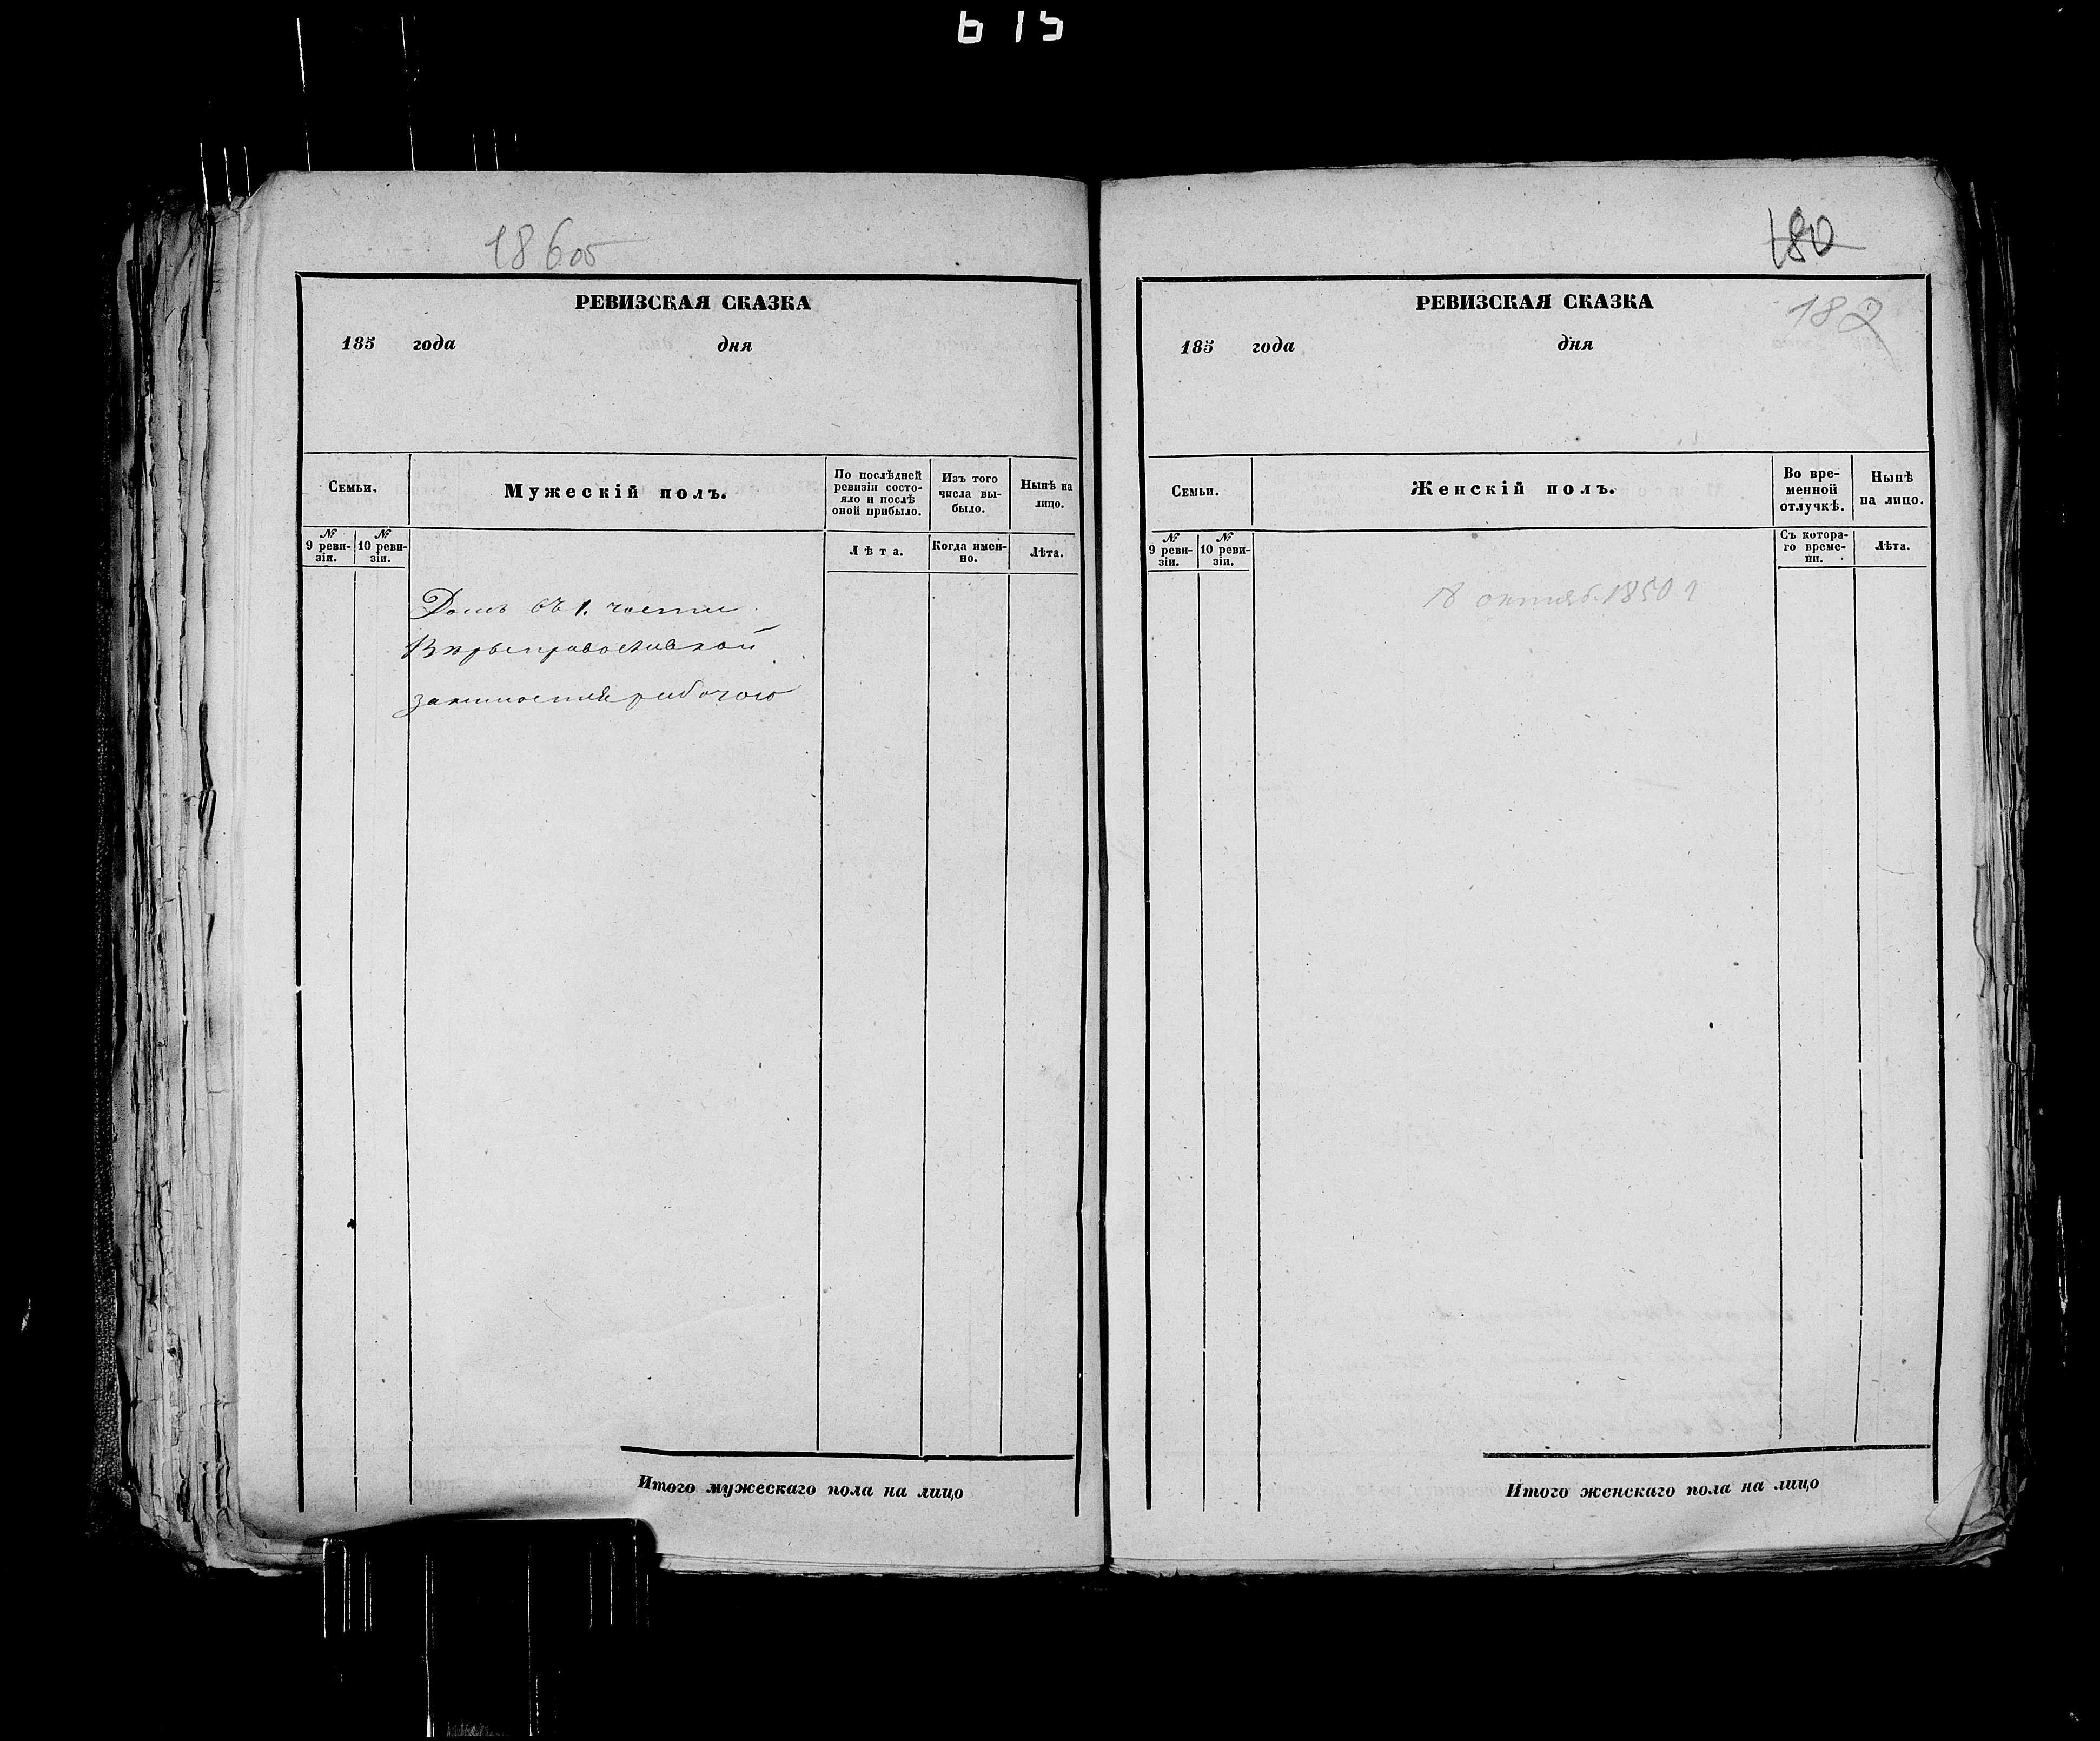 615
186об
РЕВИЗСКАЯ СКАЗКА
185 года дня
Семьи.
Мужескій полъ.
По послѣдней ревизіи состояло и послѣ оной прибыло.
Изъ того числа выбыло.
Нынѣ на лицо.
№ 9 ревизіи.
№ 10 ревизіи.
Лѣта.
Когда именно.
Лѣта.
Домъ въ 1. части
Вѣры православной
занимается работою
Итого мужескаго пола на лицо
180
182
РЕВИЗСКАЯ СКАЗКА
185 года дня
Семьи.
Женскій полъ.
Во временной отлучкѣ.
Нынѣ на лицо.
№ 9 ревизіи.
№ 10 ревизіи.
Съ котораго времени.
Лѣта.
18 октяб. 1850 г
Итого женскаго пола на лицо